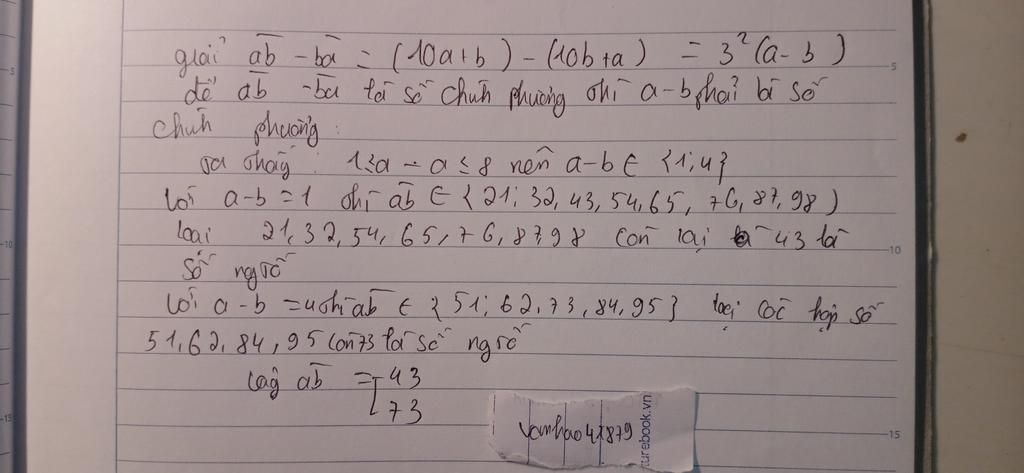 giải ab - ba = (10a+b) - (10b+a) = 3²(a-b)
để ab - ba là số chính phương thì a-b phải là số
chính phương:
ta thấy: 1≤a - a ≤ 8 nên a-b ∈ {1;4}
Với a-b=1 thì ab ∈ {21; 32, 43, 54, 65, 76, 87, 98)
loại 21, 32, 54, 65, 76, 87,98 còn lại là 43 là
số ngtố
Với a-b =4 thì ab ∈ {51; 62, 73, 84, 95} loại các hợp số
51, 62, 84, 95 còn 73 là số ngtố
Vậy ab = [43
73
vanhao41879
turebook.vn
5
10
15
5
10
15